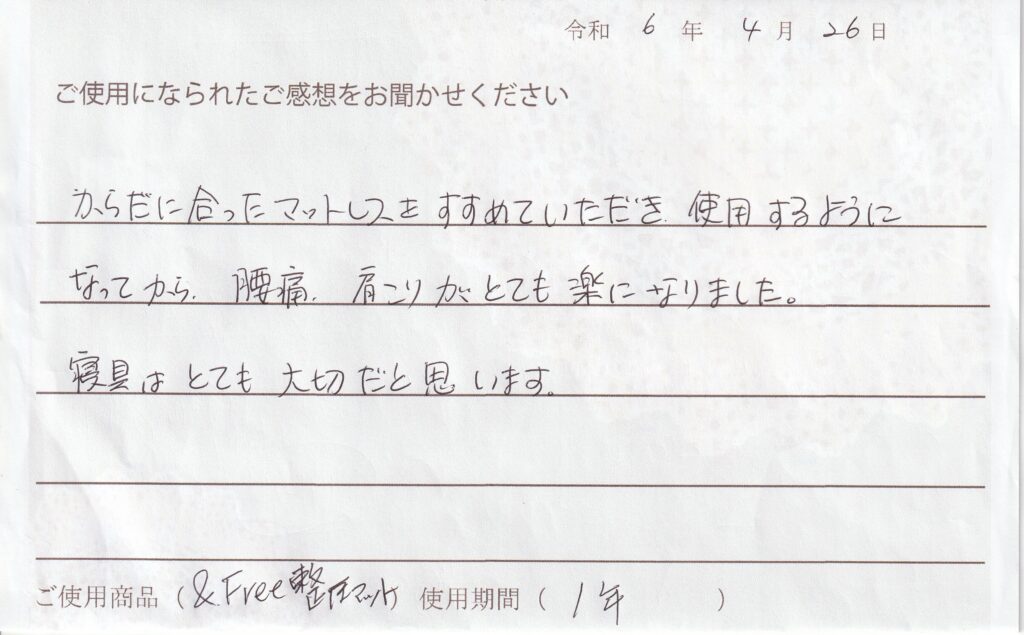 令和 6 年 4 月 26 日
ご使用になられたご感想をお聞かせください
からだに合ったマットレスをすすめていただき、使用するように
なってから、腰痛、肩こりがとても楽になりました。
寝具はとても大切だと思います。
ご使用商品（&Free整圧マット）使用期間（ 1年 ）